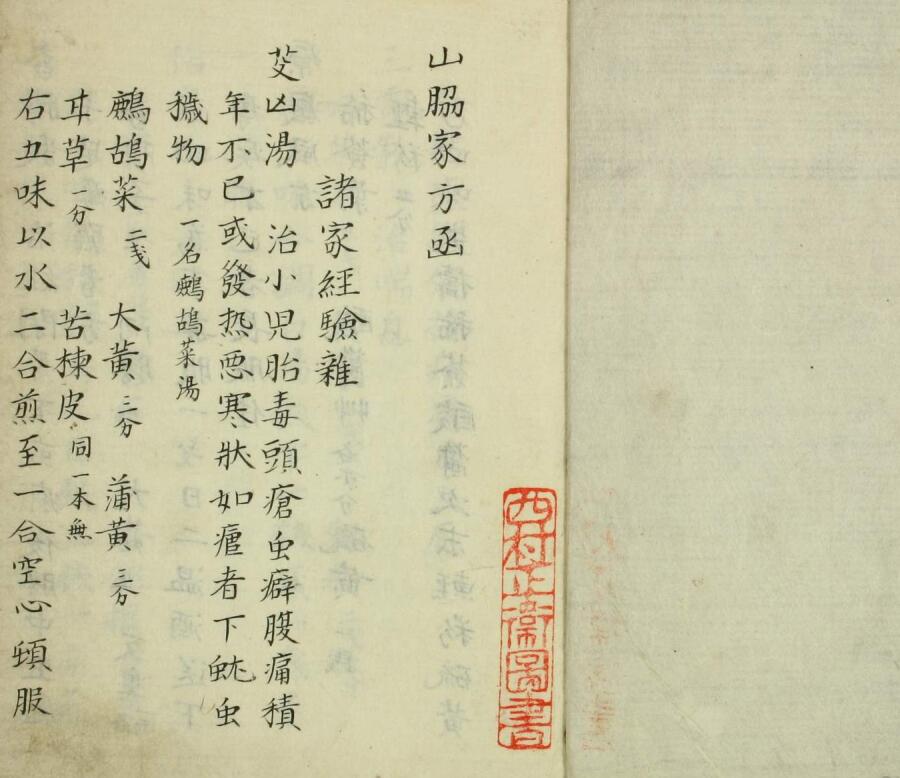 山脇家方函
諸家経驗雜
芟凶湯 治小児胎毒頭瘡虫癖腹痛積
年不已或發热惡寒状如瘧者下蚘虫
穢物 一名鷓鴣菜湯
鷓鴣菜 二戔 大黄 三分 蒲黄 三分
耳草 一分 苦楝皮 同一本無
右五味以水二合煎至一合空心頓服
西村正衛圖書